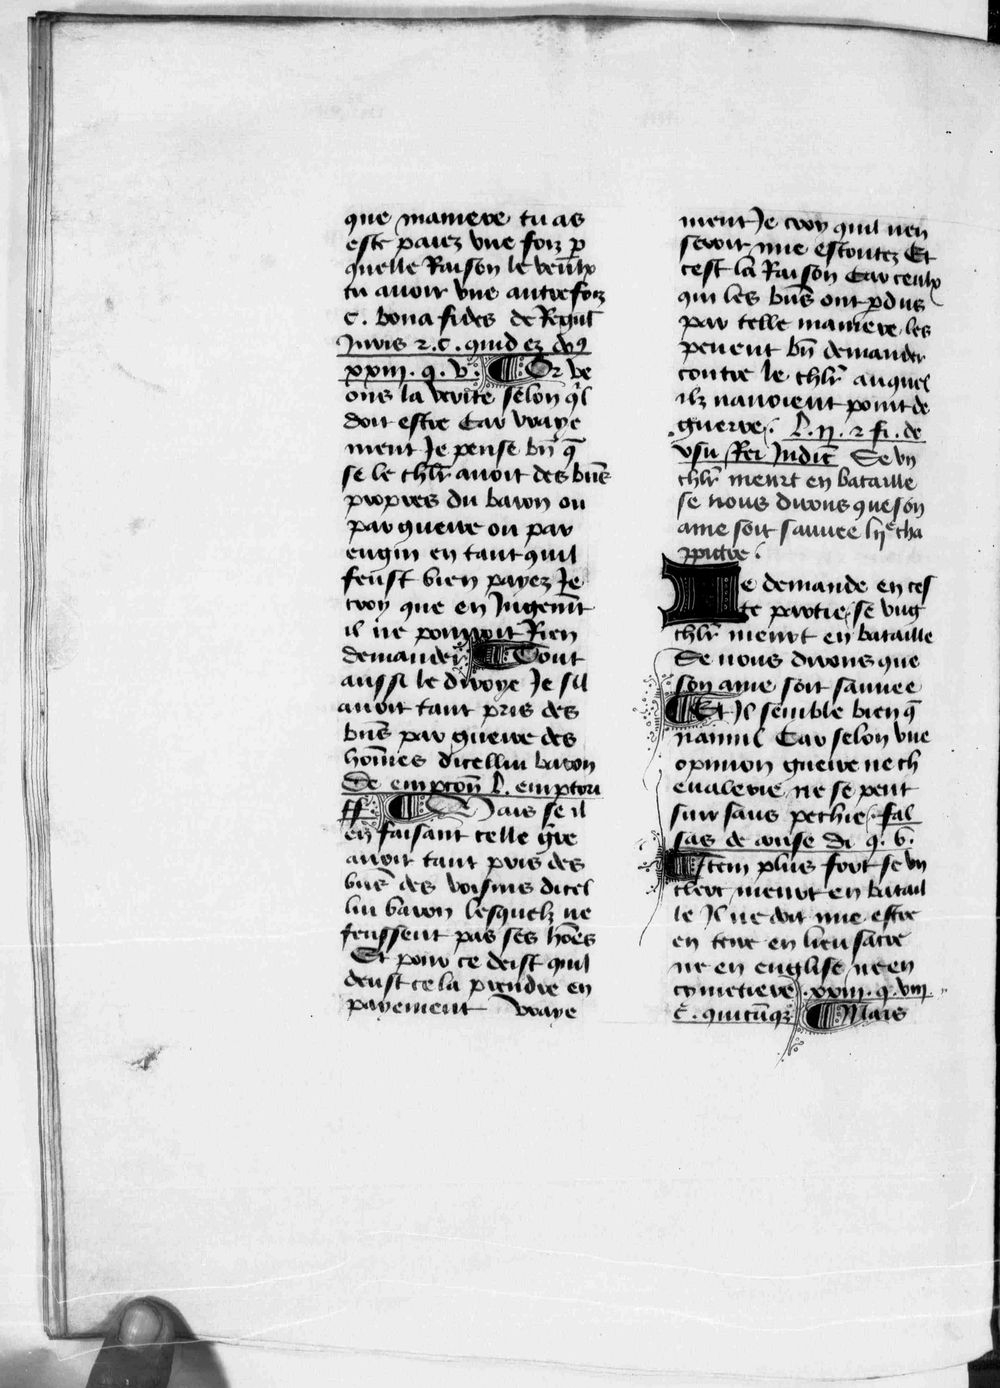 que maniere tu as
este paiez vne foiz p
quelle Raison le veulx
tu auoir vne autrefoiz
c. bona fides de Regul
Juris 2. c. quid ez
xxiii. q. v. Or ve
ons la verite selon ql
doit estre Car vraye
ment Je pense bn q
se le chlr auoit des bns
propres du baron ou
par guerre ou par
engin en tant quil
feust bien payez Je
croy que en Jugemt
il ne pourroit Rien
demander Tout
aussi le diroye Je sil
auoit tant pris des
bns par guerre des
homes dicellui baron
De empcon L. emptor
ff Mais se il
en faisant celle gre
auoit tant pris des
bns des voisins dicel
lui baron lesquelz ne
feussent pas ses hoes
Et pour ce deist quil
deust cela prendre en
payement vraye
ment Je croy quil nen
seroit mie escoutez Et
cest la Raison Car ceulx
qui les bns ont pdus
par telle maniere les
peuent bn demander
contre le chlr auquel
ilz nauoient point de
guerre. L. II. 2 fi. de
vsu Rei Judic Se vn
chlr meurt en bataille
se nous dirons que son
ame soit sauuee lije cha
ppictre.
Je demande en ces
te partie se vng
chlr meurt en bataille
Se nous dirons que
son ame soit sauuee
Et Il semble bien q
nannil Car selon vne
opinion guerre ne ch
eualerie ne se peut
sur sans pechie. fal
sas de di q. 6.
Item plus fort se vn
clerc meurt en batail
le Il ne doit mie estre
en terre en lieu sacre
ne en englise ne en
cymetiere. xxiii. q. viii.
c. quicuqz Mais